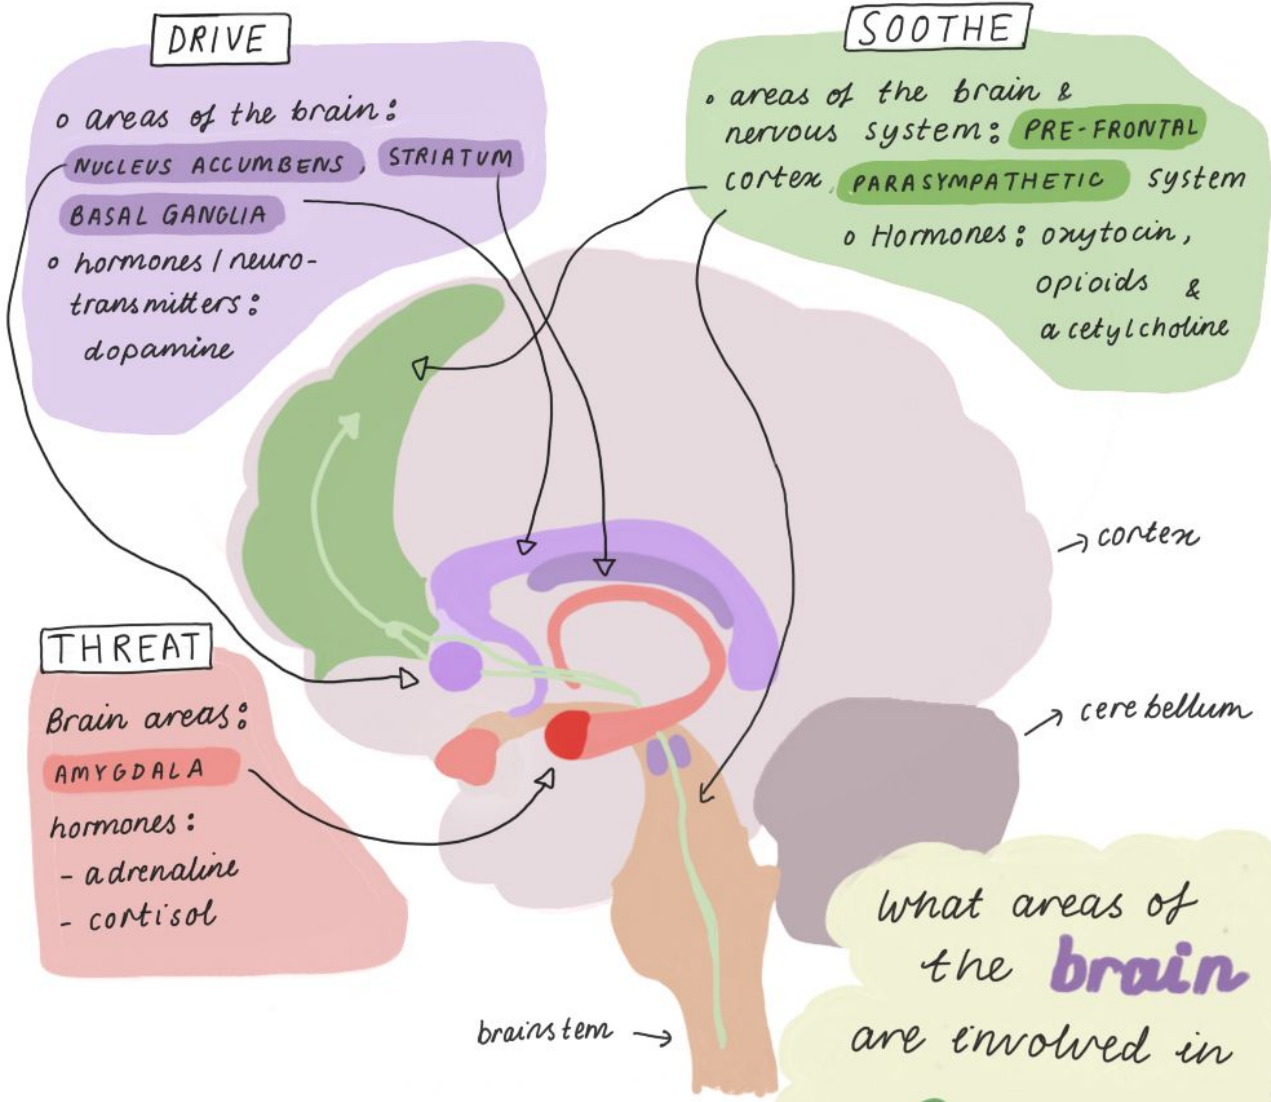 DRIVE
o areas of the brain:
NUCLEUS ACCUMBENS, STRIATUM
BASAL GANGLIA
o hormones/neuro-
transmitters:
dopamine
SOOTHE
o areas of the brain &
nervous system: PRE-FRONTAL
cortex, PARASYMPATHETIC system
o Hormones: oxytocin,
opioids &
acetylcholine
THREAT
Brain areas:
AMYGDALA
hormones:
- adrenaline
- cortisol
cortex
cerebellum
brainstem
What areas of
the brain
are involved in